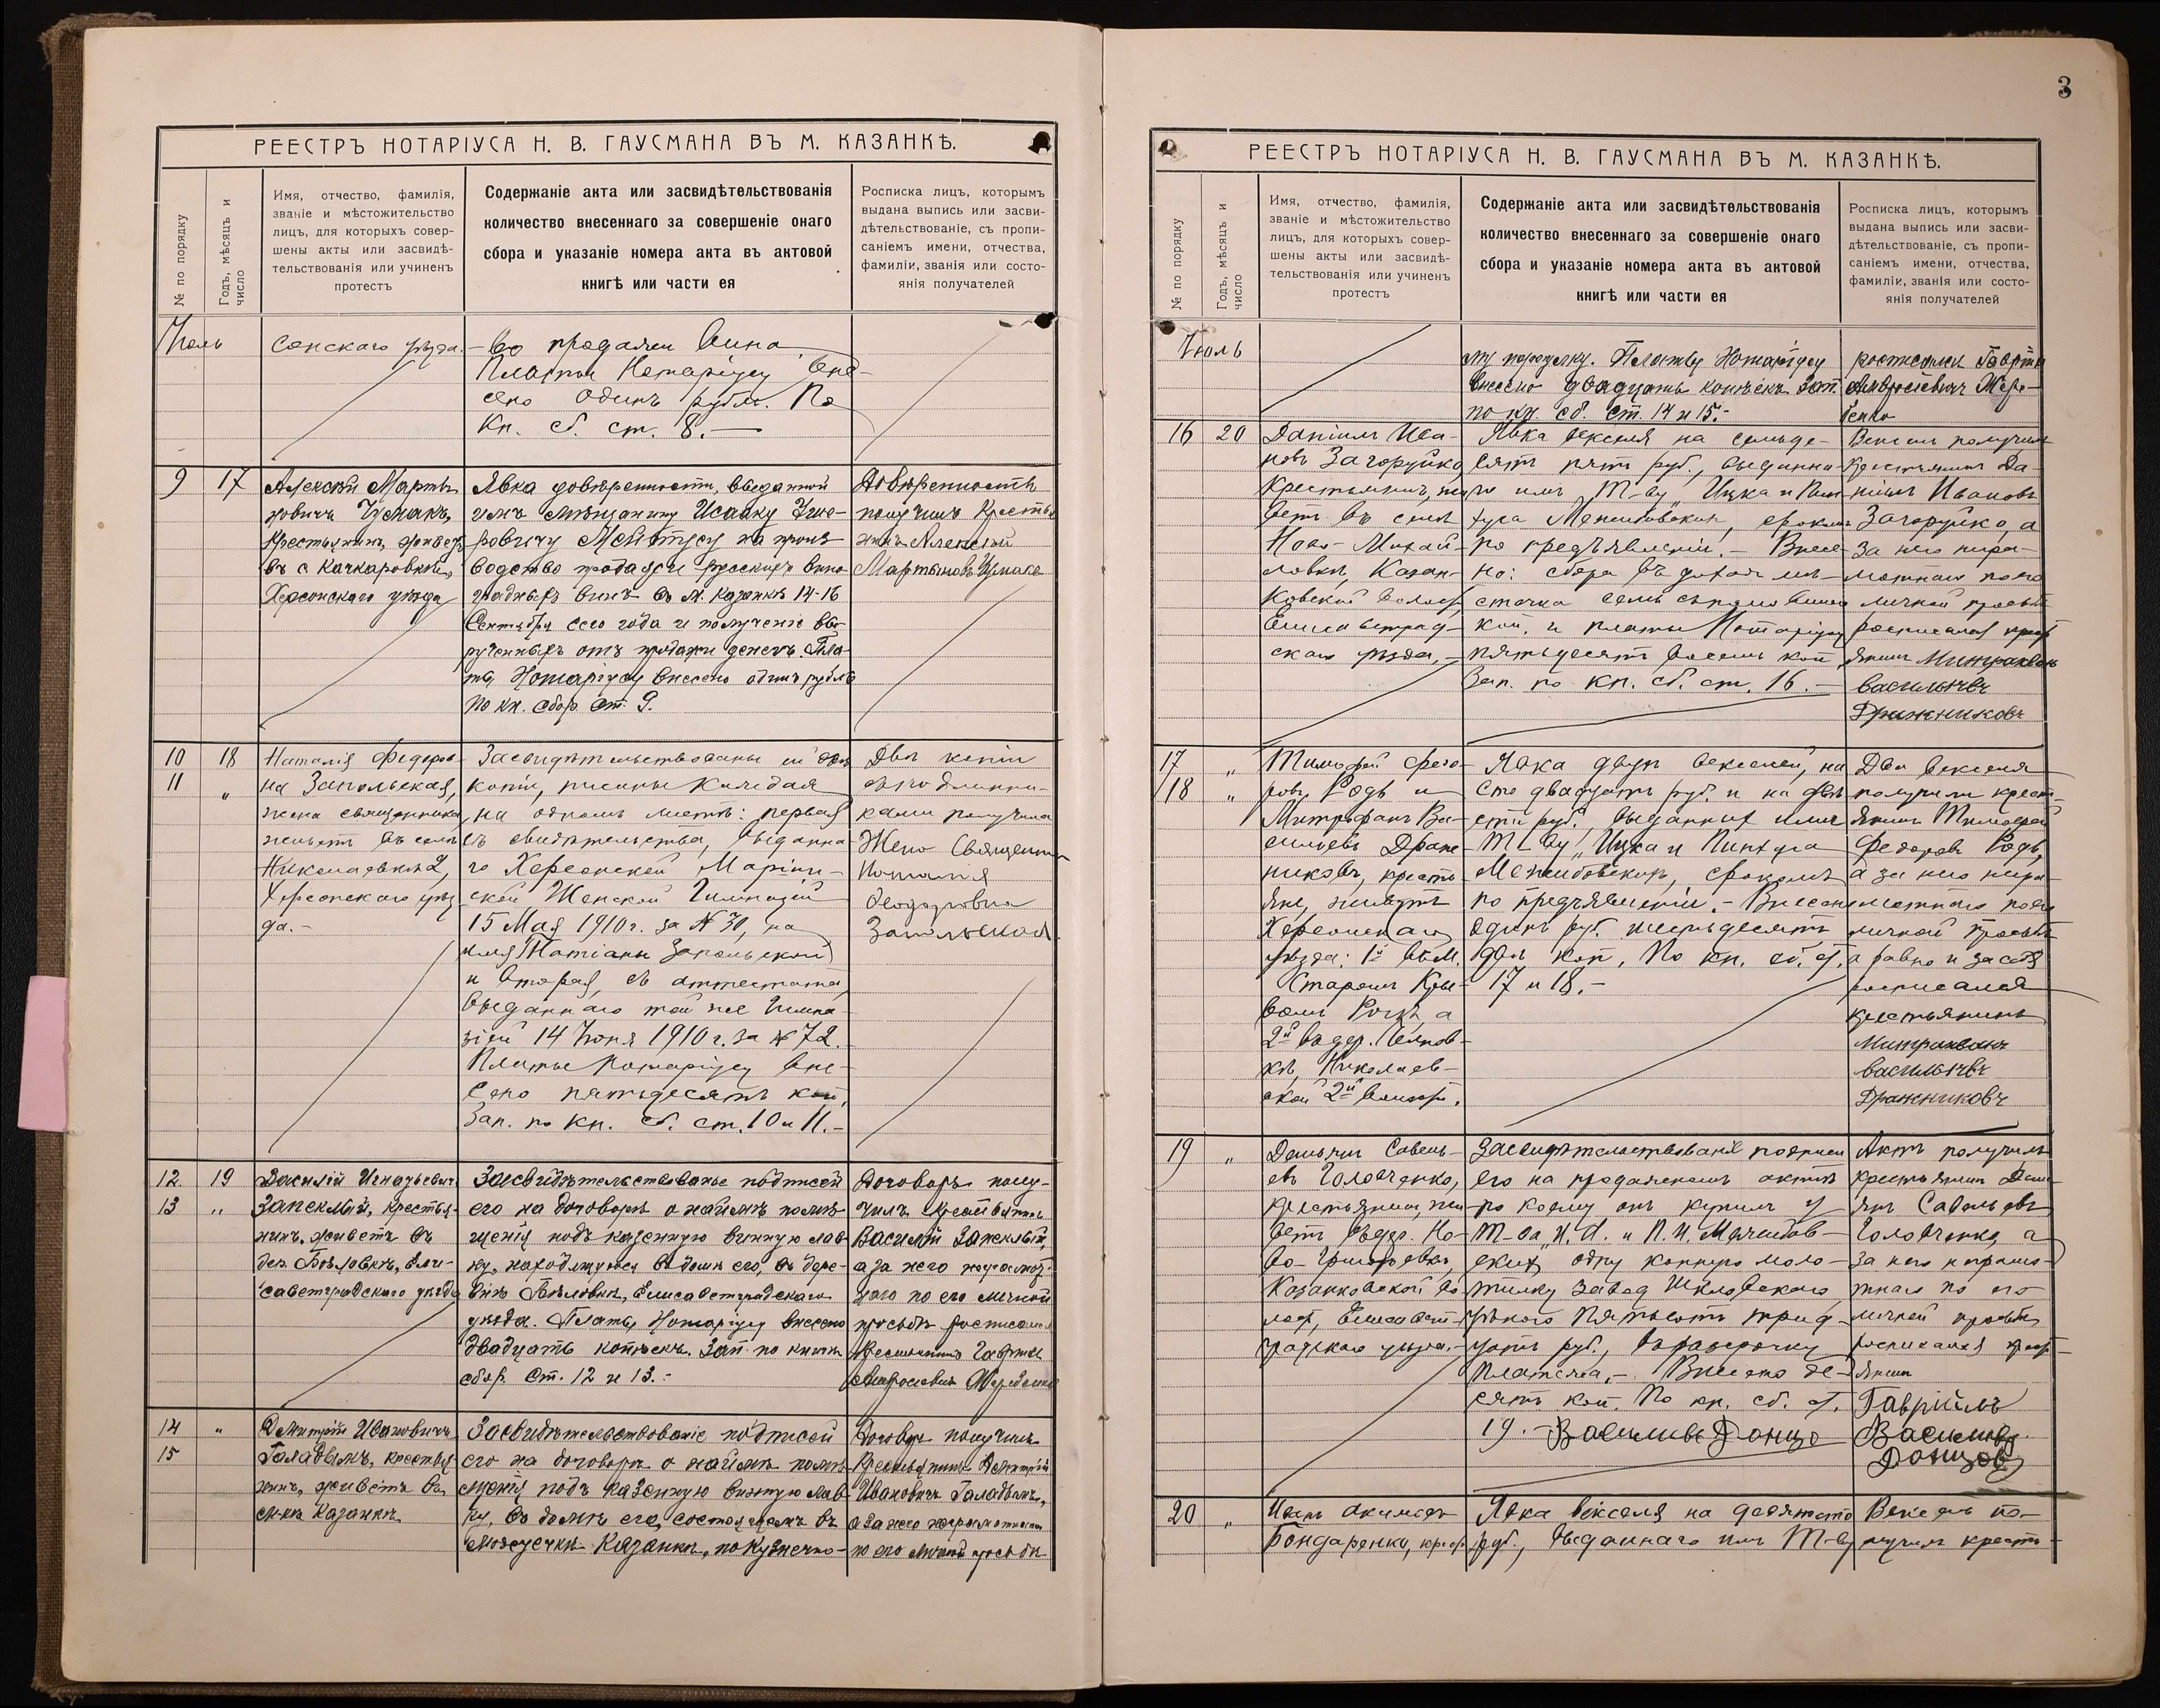 РЕЕСТРЪ НОТАРІУСА Н. В. ГАУСМАНА ВЪ М. КАЗАНКѢ.
№ по порядку
Годъ, мѣсяцъ и
число
Имя, отчество, фамилія,
званіе и мѣстожительство
лицъ, для которыхъ совер-
шены акты или засвидѣ-
тельствованія или учиненъ
протестъ
Содержаніе акта или засвидѣтельствованія
количество внесеннаго за совершеніе онаго
сбора и указаніе номера акта въ актовой
книгѣ или части ея
Росписка лицъ, которымъ
выдана выпись или засви-
дѣтельствованіе, съ пропи-
саніемъ имени, отчества,
фамиліи, званія или состо-
янія получателей
Іюль
сонскаго уѣзда.
-во продажи вина.
Платы Нотаріусу вне-
сено одинъ рубль. По
Кн. сб. ст. 8.—
9 17
Алексѣй Марты-
новичъ Чумакъ,
крестьянинъ, живетъ
въ с Качкаровкѣ,
Херсонскаго уѣзда
Явка довѣренности, выданной
имъ мѣщанину Исааку
на произ-
водство продажи русскихъ вино-
градныхъ винъ въ м. Казанкѣ 14-16
Сентября сего года и полученіе вы-
рученныхъ отъ продажи денегъ. Пла-
ты Нотаріусу внесено одинъ рубль
по кн. сбор. ст. 9.
Довѣренность
получилъ крестья-
нинъ Алексѣй
Мартыновъ Чумакъ
10 18
11 „
Наталія Федоров-
на Запольская,
жена священника,
живетъ въ селѣ
Николаевкѣ 2,
Херсонскаго уѣз-
да.—
Засвидѣтельствованы ей двѣ
копіи, писаны каждая
на одномъ листѣ: первая
съ свидѣтельства, выданна-
го Херсонской Маріин-
ской Женской Гимназіей
15 Мая 1910 г. за № 30, на
имя Татіаны Запольской
и вторая, съ аттестата,
выданнаго той же Гимна-
зіей 14 Іюня 1910 г. за № 72.
Платы Нотаріусу вне-
сено пятьдесятъ коп.
Зап. по кн. сб. ст. 10 и 11.—
Двѣ копіи
съ подлинни-
ками получила
Жена Священника
Наталія
Феодоровна
Запольская.
12. 19
13 „
Василій Игнатьевичъ
Запеклый, крестья-
нинъ, живетъ въ
дер. Бѣловкѣ, Ели-
саветградскаго уѣзда
Засвидѣтельствованье подписей
его на договорѣ о наймѣ помѣ-
щенія подъ казенную винную лав-
ку, находящуюся въ домѣ его, въ дере-
внѣ Бѣловкѣ, Елисаветградскаго
уѣзда. Платы Нотаріусу внесено
двадцать копѣекъ. Зап. по книгѣ
сбор. ст. 12 и 13.-
Договоръ полу-
чилъ крестьянинъ
Василій Запеклый,
а за него неграмот-
наго по его личной
просьбѣ росписался
Крестьянинъ Гавріилъ
14 „
15
Дмитрій Ивановичъ
Галадымъ, крестья-
нинъ, живетъ въ
м-кѣ Казанкѣ
Засвидѣтельствованіе подписей
его на договорѣ о наймѣ помѣ-
щенія подъ казенную винную лав-
ку, въ домѣ его, состоящемъ въ
мѣстечкѣ Казанкѣ, по Кузнечно-
Договоръ получилъ
Крестьянинъ Дмитрій
Ивановичъ Галадымъ,
а за него неграмотнаго
по его личной просьбѣ
3
РЕЕСТРЪ НОТАРІУСА Н. В. ГАУСМАНА ВЪ М. КАЗАНКѢ.
№ по порядку
Годъ, мѣсяцъ и
число
Имя, отчество, фамилія,
званіе и мѣстожительство
лицъ, для которыхъ совер-
шены акты или засвидѣ-
тельствованія или учиненъ
протестъ
Содержаніе акта или засвидѣтельствованія
количество внесеннаго за совершеніе онаго
сбора и указаніе номера акта въ актовой
книгѣ или части ея
Росписка лицъ, которымъ
выдана выпись или засви-
дѣтельствованіе, съ пропи-
саніемъ имени, отчества,
фамиліи, званія или состо-
янія получателей
Іюль
му переулку. Платы Нотаріусу
внесено двадцать копѣекъ. Зап.
по кн. сб. ст. 14 и 15.-
росписался Гавріилъ
16 20
Даніилъ Ива-
новъ Загоруйко,
крестьянинъ, жи-
ветъ въ селѣ
Ново-Михай-
ловкѣ, Казан-
ковской волости,
Елисаветград-
скаго уѣзда,—
Явка векселя на семьде-
сятъ пять руб., выданна-
го имъ Т-ву „Ицка и Пин-
хуса Межибовскихъ, срокомъ
по предъявленіи.— Внесе-
но: сбора въ доходъ мѣ-
стечка семь съ полов.
коп. и платы Нотаріусу
пятьдесятъ восемь коп
Зап. по кн. сб. ст. 16.—
Вексель получилъ
Крестьянинъ Да-
ніилъ Ивановъ
Загоруйко, а
за него негра-
мотнаго по его
личной просьбѣ
росписался крест-
янинъ Митрофанъ
васильевъ
Дражниковъ
17 „
18 „
Тимофей Федо-
ровъ Родь и
Митрофанъ Ва-
сильевъ Драж-
никовъ, кресть-
яне, живутъ
Херсонскаго
уѣзда: 1й въ м.
Старомъ Кри-
вомъ Рогѣ, а
2й въ дер.
кѣ, Николаев-
ской 2й волости.
Явка двухъ векселей, на
сто двадцать руб. и на двѣ-
сти руб., выданныхъ ими
Т-ву „Ицка и Пинхуса
Межибовскихъ, срокомъ
по предъявленіи.— Внесено
одинъ руб. шестьдесятъ
двѣ коп. По кн. сб. ст.
17 и 18.—
Два векселя
получили крест-
янинъ Тимофей
Федоровъ Родь,
а за него негра-
мотнаго по его
личной просьбѣ
а равно и за себя
росписался
крестьянинъ
Митрофанъ
васильевъ
Дражниковъ
19 „
Демьянъ Савель-
евъ Головченко,
крестьянинъ, жи-
ветъ въ дер. Но-
во-Григорьевкѣ,
Казанковской во-
лост, Елисавет-
градскаго уѣзда.—
Засвидѣтельствованіе подписи
его на продажномъ актѣ
по коему онъ купилъ у
Т-ва „И. И. и П. И. Межибов-
скихъ одну конную моло-
тилку завод. Шкловскаго,
цѣною пятьсотъ трид-
цать руб., въ разсрочку
платежа,— Внесено де-
сять коп. По кн. сб. ст.
19.—
Актъ получилъ
крестьянинъ Демь-
янъ Савельевъ
Головченко, а
за него неграмо-
тнаго по его
личной просьбѣ
росписался крест-
янинъ
Гавріилъ
Васильевъ
Донцовъ
20 „
Иванъ Акимовъ
Бондаренко, крест.
Явка векселя на девяносто
руб., выданнаго имъ Т-ву
Вексель по-
лучилъ кресть-